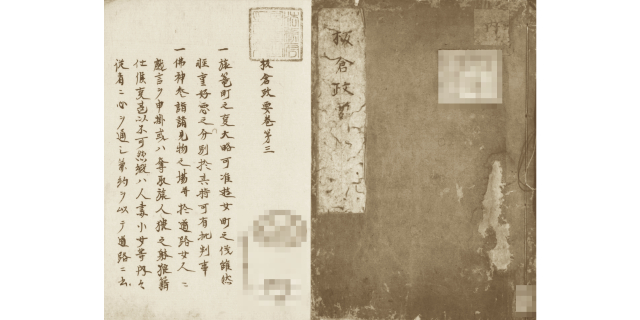 板倉政要
板倉政要巻第三
一旅篭町之夏大略可准遊女町之後雖然
軽重好悪之分別於其時可有批判事
一佛神参詣諸見物之場并於道路女人ニ
戯言ヲ申掛或ハ奪取旅人猥之躰狼藉
仕儀夏 以不可然縦ハ人妻小女等内々
従者ニ心ヲ通シ兼約ヲ以テ道路ニ出